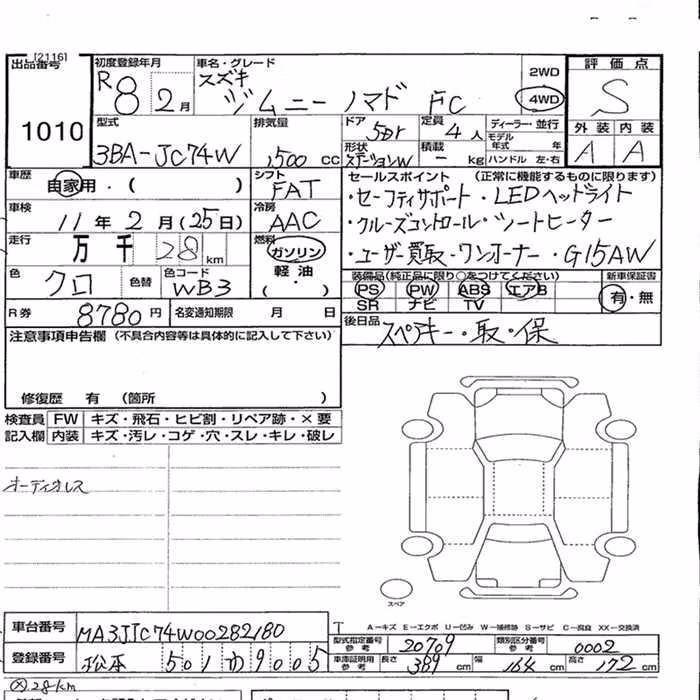 [2116]
出品番号
1010
初度登録年月
R8 2月
車名・グレード
スズキ
ジムニー ノマド FC
2WD
4WD
評価点
S
型式
3BA-JC74W
排気量
1,500 cc
ドア
5Dr
定員
4人
ディーラー・並行
モデル年式 年
形状
ステーションW
積載
- kg
ハンドル 左・右
外装 内装
A A
車歴
自家用・( )
シフト
FAT
セールスポイント (正常に機能するものに限ります)
・セーフティサポート・LEDヘッドライト
・クルーズコントロール・シートヒーター
・ユーザー買取・ワンオーナー・G15AW
車検
11年2月(25日)
冷房
AAC
走行
万 千 28 km
燃料
ガソリン
軽油
・( )
色
クロ
色替
色コード
WB3
装備品(純正品に限り○をつけてください)
PS PW ABS エアB
SR ナビ TV
新車保証書
有・無
R券 8780円
名変通知期限 月 日
後日品
スペアキー・取・保
注意事項申告欄 (不具合内容等は具体的に記入して下さい)
修復歴 有 (箇所 )
検査員記入欄
FW キズ・飛石・ヒビ割・リペア跡・×要
内装 キズ・汚レ・コゲ・穴・スレ・キレ・破レ
オーディオレス
スペア
車台番号
MA3JJC74W00282180
A－キズ E－エクボ U－凹み W－補修跡 S－サビ C－腐食 XX－交換済
型式指定番号
参考
20709
類別区分番号
参考
0002
登録番号
松本 501 わ 9005
車庫証明用
参考
長さ 389 cm
幅 164 cm
高さ 172 cm
28km